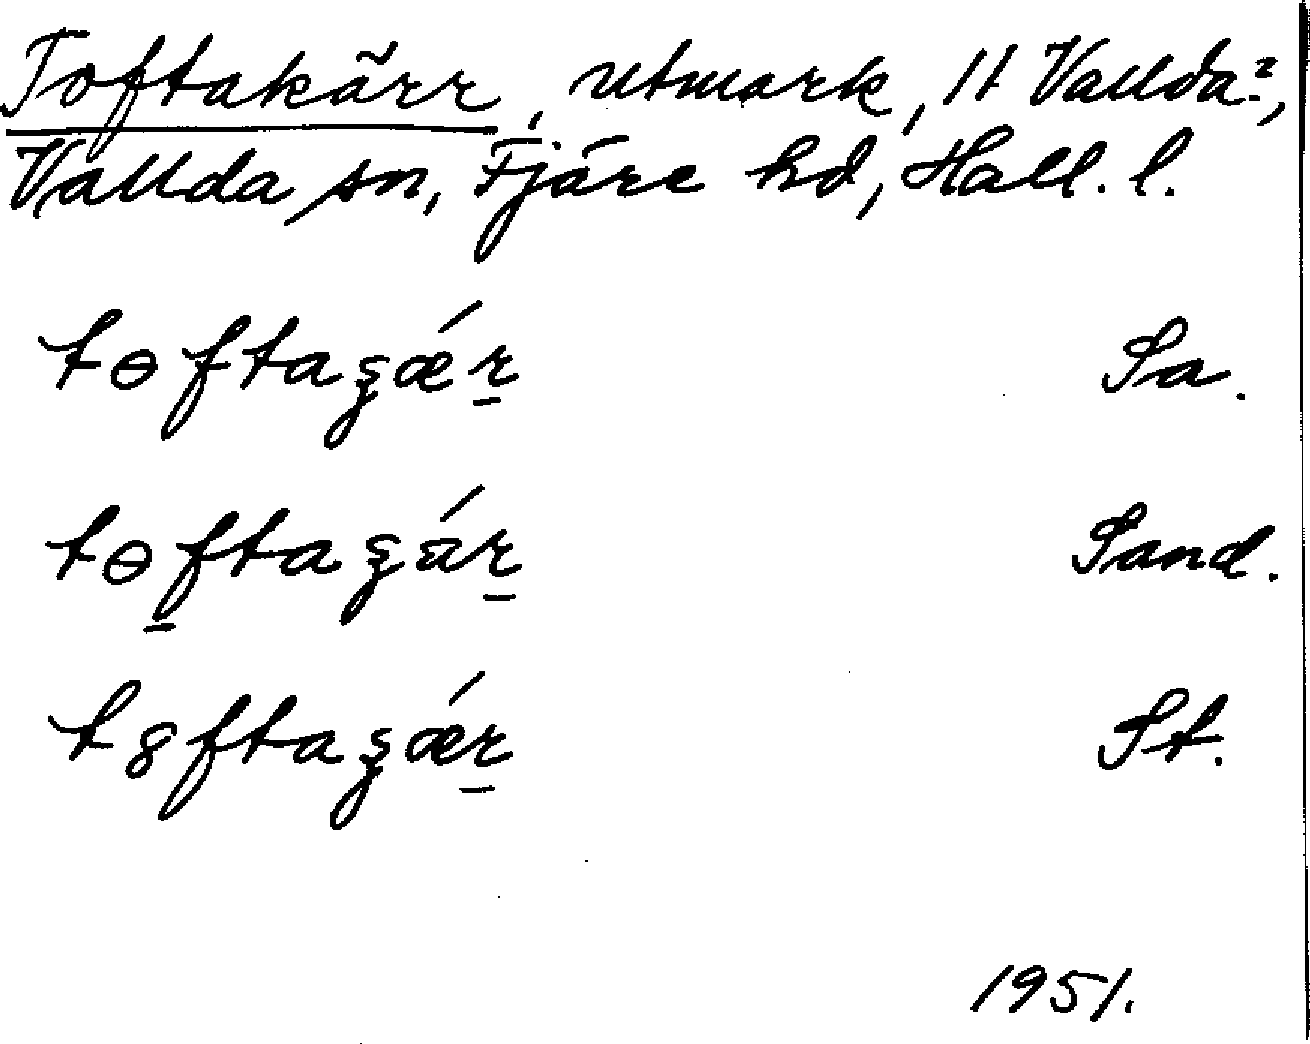 Toftakärr, utmark, 1t Vallda²,
Vallda sn, Fjäre hd, Hall. l.
tɵftaʒǽr̲ Sa.
tɵf̲taʒár̲ Sand.
t8ftaʒǽr̲ St.
1951.